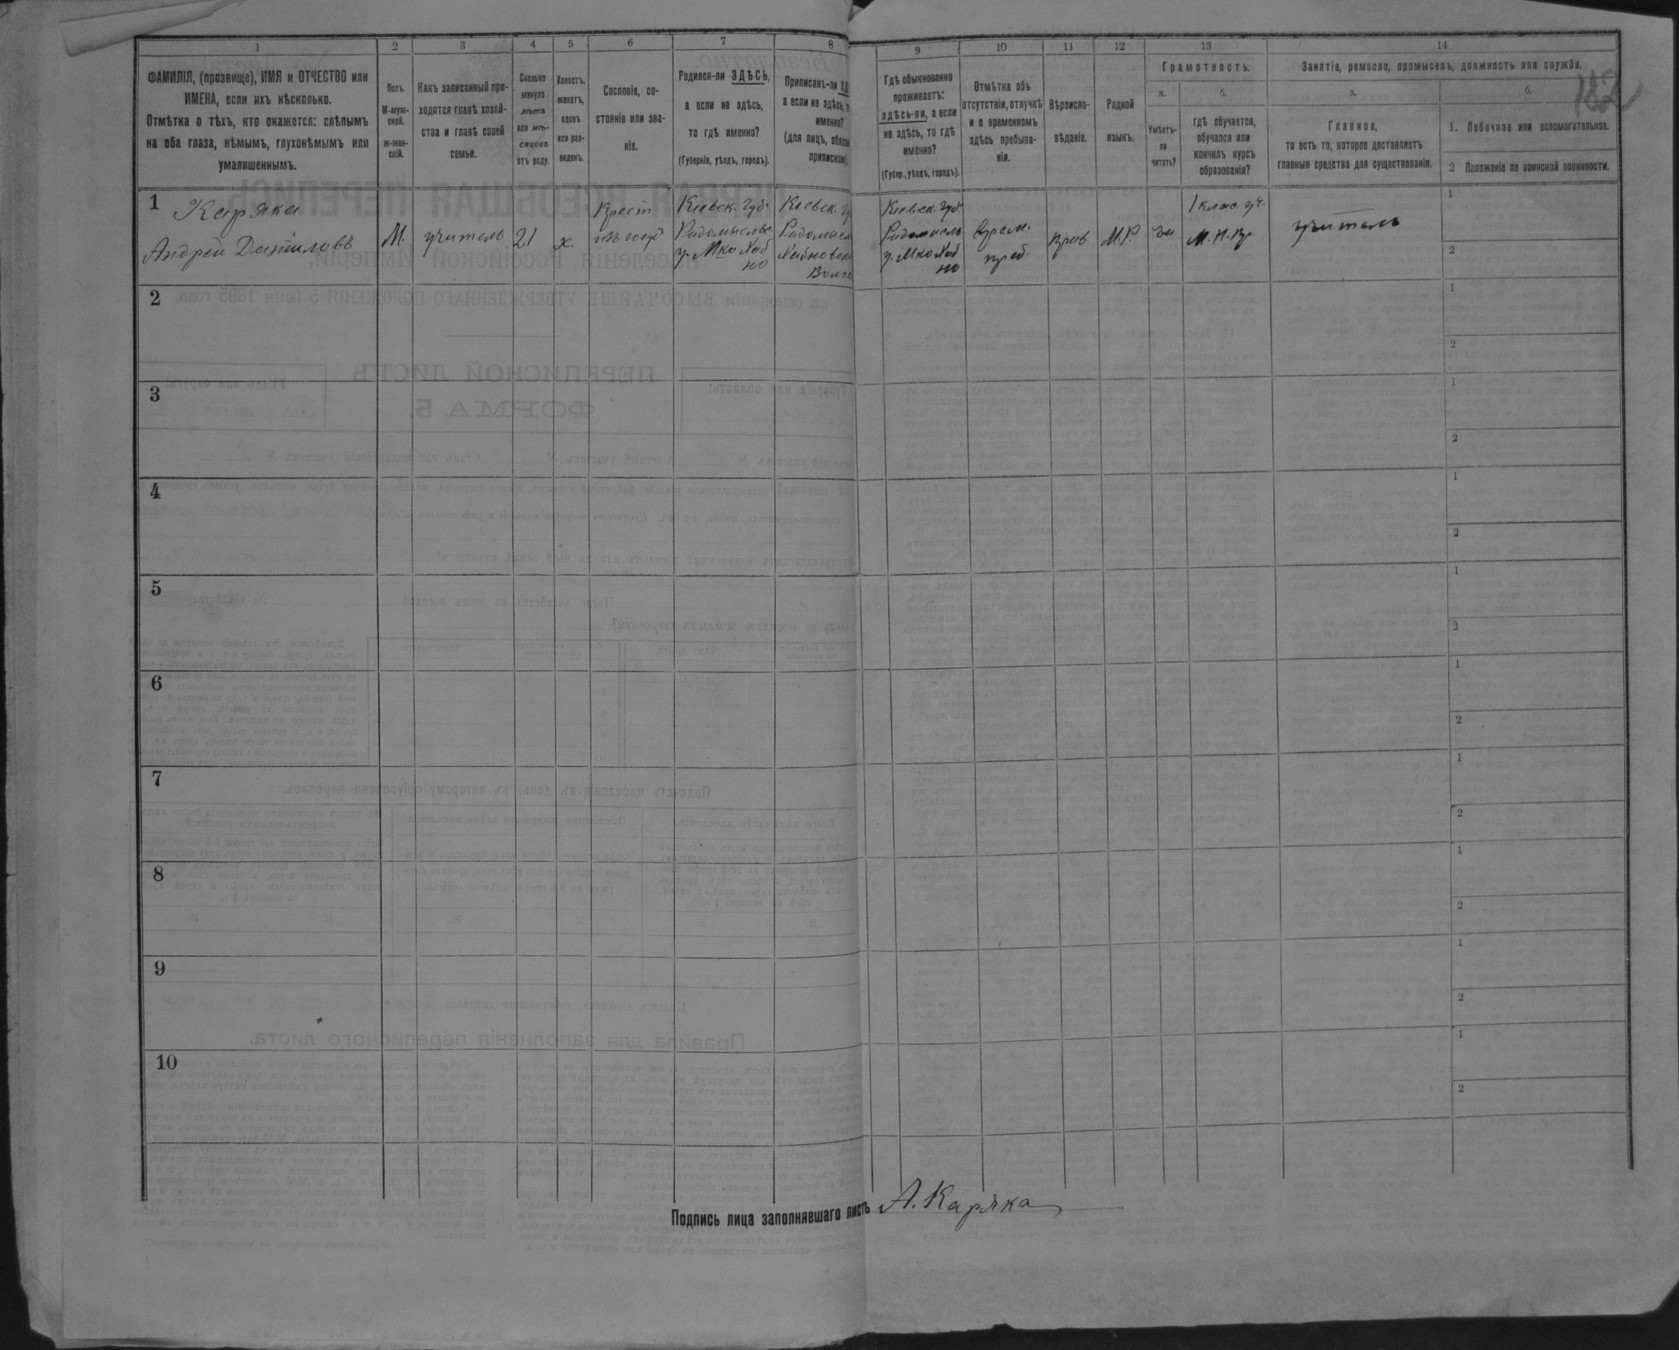 1 2 3 4 5 6 7 8 9 10 11 12 13 14
ФАМИЛІЯ, (прозвище), ИМЯ и ОТЧЕСТВО или
ИМЕНА, если ихъ нѣсколько.
Отмѣтка о тѣхъ, кто окажется: слѣпымъ
на оба глаза, нѣмымъ, глухонѣмымъ или
умалишеннымъ.
Полъ.
М-муж-
ской.
Ж-жен-
скій.
Какъ записанный при-
ходится главѣ хозяй-
ства и главѣ своей
семьи.
Сколько
минуло
лѣтъ
или мѣ-
сяцевъ
отъ роду.
Холостъ,
женатъ,
вдовъ
или раз-
веденъ.
Сословіе, со-
стояніе или зва-
ніе.
Родился-ли ЗДѢСЬ,
а если не здѣсь,
то гдѣ именно?
(Губернія, уѣздъ, городъ).
Приписанъ-ли
а если не здѣсь,
именно?
(для лицъ,
Гдѣ обыкновенно
проживаетъ:
здѣсь-ли, а если
не здѣсь, то гдѣ
именно?
(Губер., уѣздъ, городъ).
Отмѣтка объ
отсутствіи, отлучкѣ
и о временномъ
здѣсь пребыва-
ніи.
Вѣроиспо-
вѣданіе.
Родной
языкъ.
Грамотность.
а.
Умѣетъ-
ли
читать?
б.
гдѣ обучается,
обучался или
кончилъ курсъ
образованія?
Занятіе, ремесло, промыселъ, должность или служба.
а.
Главное,
то есть то, которое доставляетъ
главныя средства для существованія.
б.
1. Побочное или вспомогательное.
2 Положеніе по воинской повинности.
182
1
Каряка
Андрей Даниловъ
М.
учитель
21
х.
Крест.
изъ госуд
Кіевск. Губ.
Радомысльс
у. Мко Хаб
но
Кіевск.
Радомысл
Хабновск
Волос
Кіевск. Губ
Радомысль
у. Мко Хаб
но
Врем.
преб.
Прав
М.Р.
да
1 клас. уч.
М. Н. Пр
учитель
1
2
2
1
2
3
1
2
4
1
2
5
1
2
6
1
2
7
1
2
8
1
2
9
1
2
10
1
2
Подпись лица заполнявшаго листъ А. Каряка